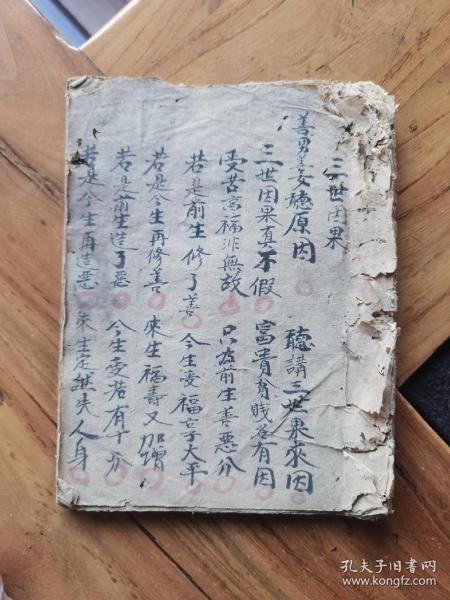 三世因果
善男善女聽原因 聽講三世果來因
三世因果真不假 富貴貧賤各有因
受苦享福非無故 只在前生善惡分
若是前生修了善 今生受福享太平
若是今生再修善 來生福壽又加增
若是前生造了惡 今生受苦有十分
若是今生再造惡 來生定然失人身
孔夫子旧书网
www.kongfz.com